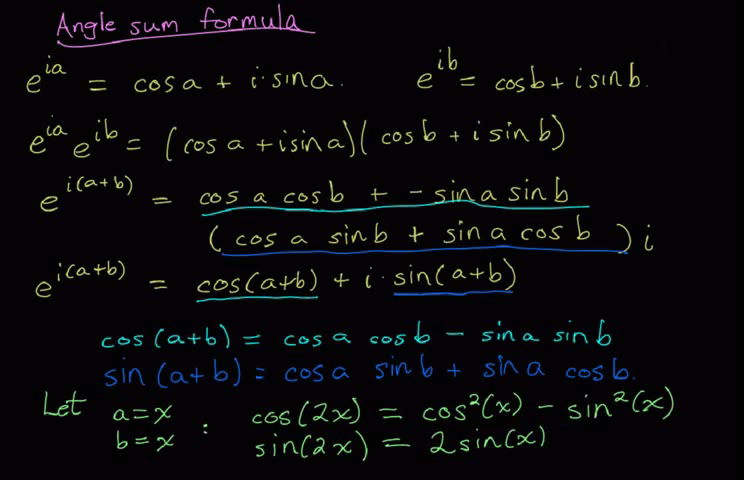 Angle sum formula
e^{ia} = cos a + i · sin a. e^{ib} = cos b + i sin b.
e^{ia} e^{ib} = (cos a + i sin a)(cos b + i sin b)
e^{i(a+b)} = cos a cos b + - sin a sin b
(cos a sin b + sin a cos b) i
e^{i(a+b)} = cos(a+b) + i · sin(a+b)
cos(a+b) = cos a cos b - sin a sin b
sin(a+b) = cos a sin b + sin a cos b.
Let a = x : cos(2x) = cos²(x) - sin²(x)
b = x sin(2x) = 2 sin(x)